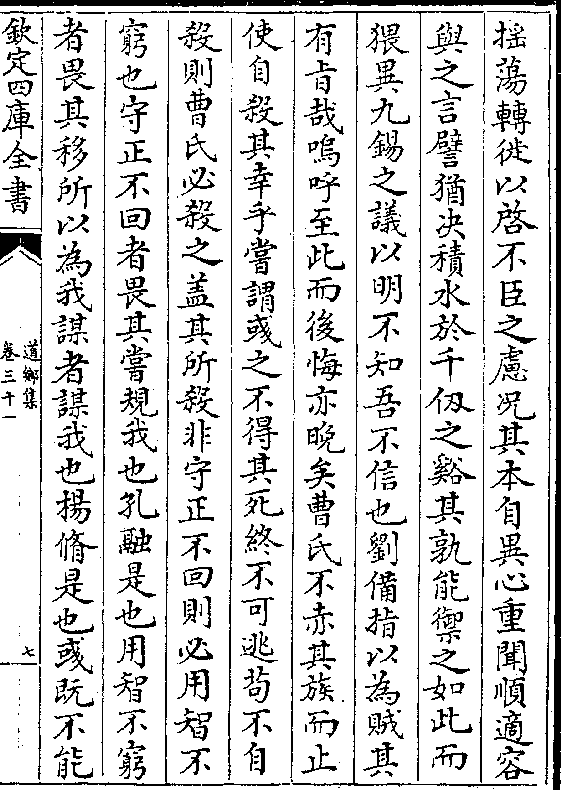 揺蕩轉徙以啓不臣之慮况其本自異心重聞順適容
與之言譬猶决積水於千仭之谿其孰能禦之如此而
猥異九錫之議以明不知吾不信也劉備指以為賊其
有旨哉嗚呼至此而後悔亦晚矣曹氏不赤其族而止
使自殺其幸乎嘗謂彧之不得其死終不可逃茍不自
殺則曹氏必殺之盖其所殺非守正不回則必用智不
窮也守正不回者畏其嘗規我也孔融是也用智不窮
者畏其移所以為我謀者謀我也楊脩是也彧既不能
欽定四庫全書
道鄉集
卷三十一
七